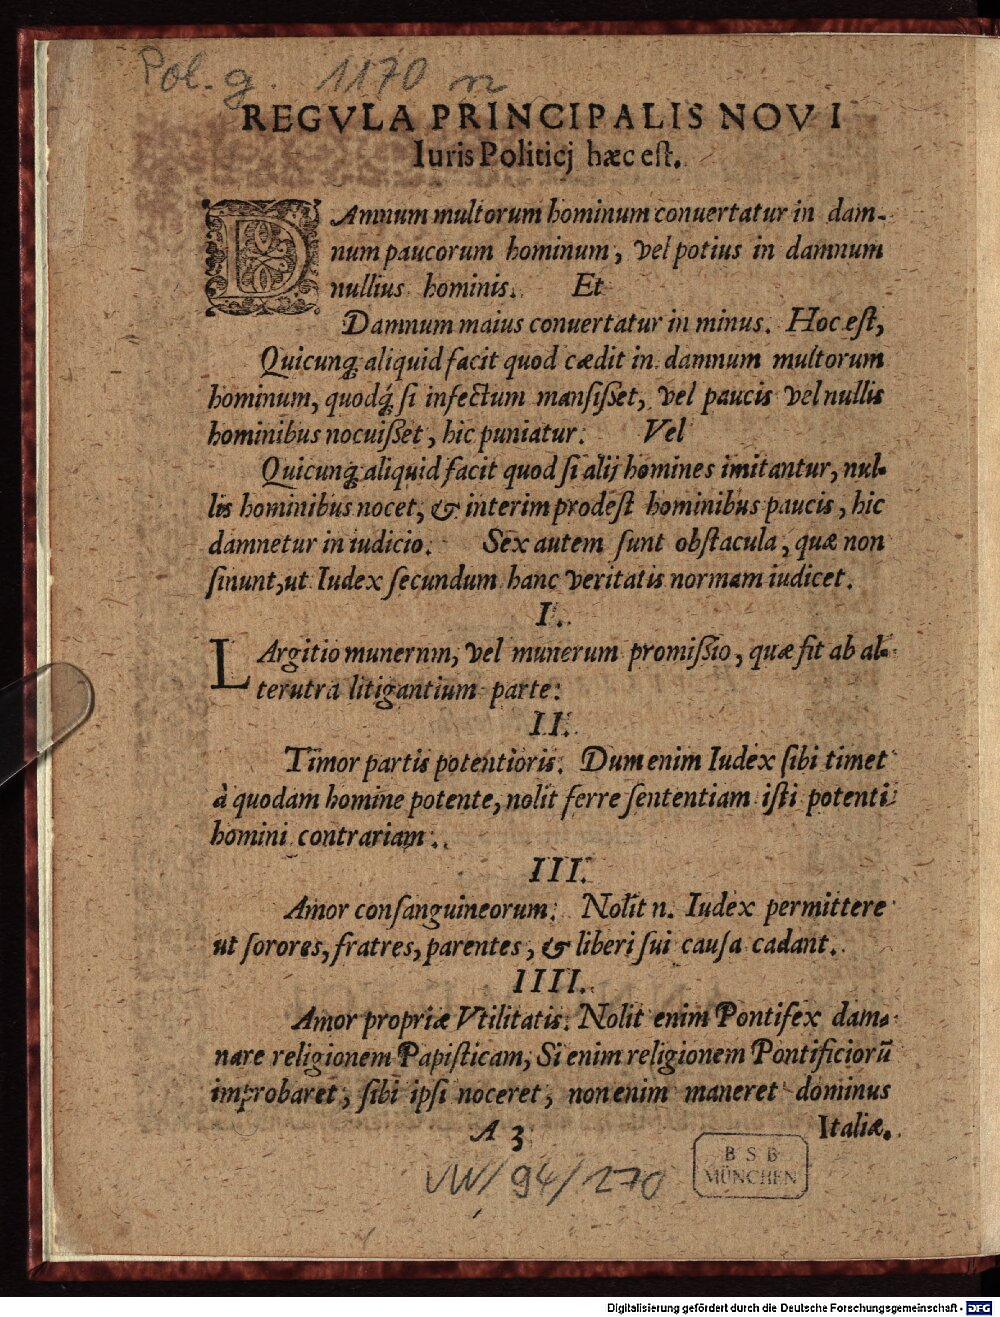 Pol. g. 1170 m
REGVLA PRINCIPALIS NOV I
Iuris Politicj hæc est.
DAmnum multorum hominum conuertatur in dam-
num paucorum hominum, vel potius in damnum
nullius hominis. Et
Damnum maius conuertatur in minus. Hoc est,
Quicunq; aliquid facit quod cædit in damnum multorum
hominum, quodq́; si infectum mansisset, vel paucis vel nullis
hominibus nocuisset, hic puniatur. Vel
Quicunq; aliquid facit quod si alij homines imitantur, nul-
lis hominibus nocet, & interim prodest hominibus paucis, hic
damnetur in iudicio. Sex autem sunt obstacula, quæ non
sinunt, ut Iudex secundum hanc veritatis normam iudicet.
I.
LArgitio munerum, vel munerum promissio, quæ fit ab al-
terutra litigantium parte.
II.
Timor partis potentioris. Dum enim Iudex sibi timet
à quodam homine potente, nolit ferre sententiam isti potenti
homini contrariam.
III.
Amor consanguineorum. Nolit n. Iudex permittere
ut sorores, fratres, parentes, & liberi sui causa cadant.
IIII.
Amor propriæ Vtilitatis. Nolit enim Pontifex dam-
nare religionem Papisticam, Si enim religionem Pontificiorū
improbaret, sibi ipsi noceret, non enim maneret dominus
A 3 Italiæ.
VW/94/270
BSB
MÜNCHEN
Digitalisierung gefördert durch die Deutsche Forschungsgemeinschaft - DFG